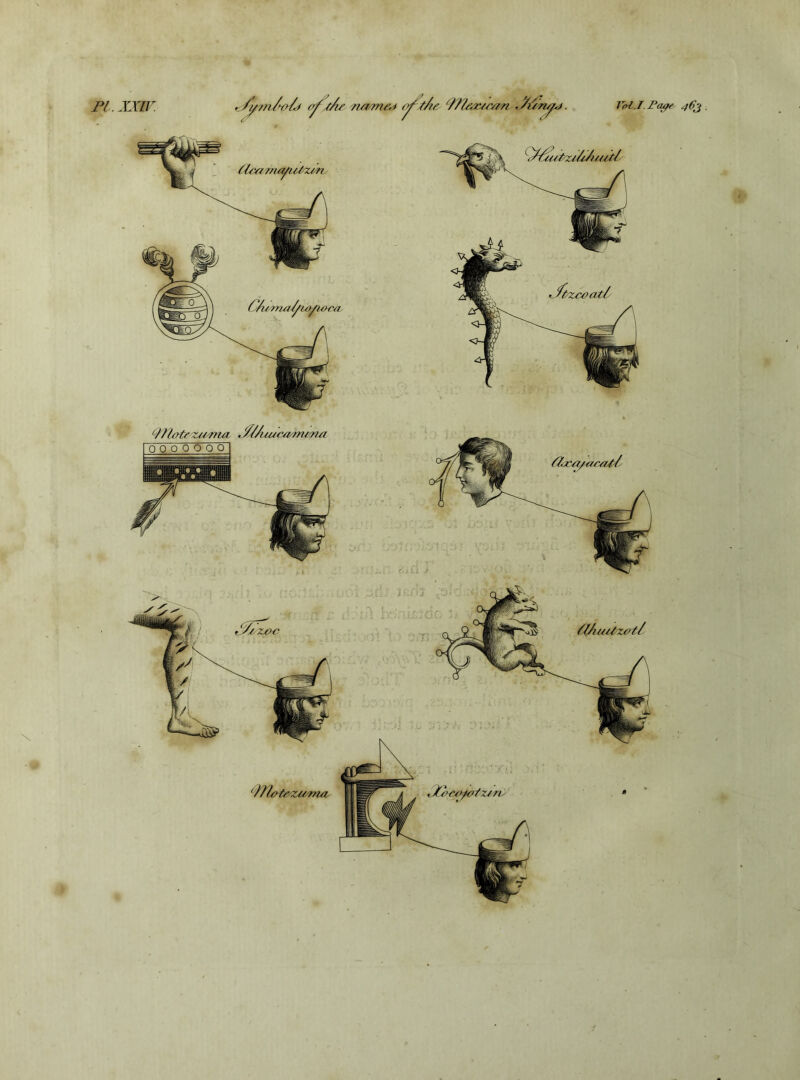 Pl. XXIV. Symbols of the names of the Mexican Kings. Vol. I. Page 463.
Acamapitzin
Huitzilihuitl
Chimalpopoca
Itzcoatl
Motezuma Ilhuicamina
Axajacatl
Tizoc
Ahuitzotl
Motezuma Xocojotzin